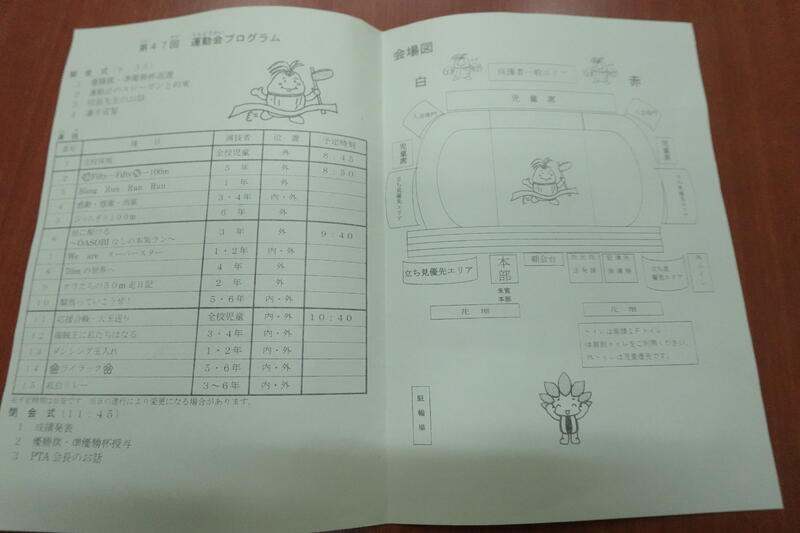 第47回 運動会プログラム
開会式
1 優勝旗・準優勝杯返還
2 運動会のスローガンと約束
3 校長先生のお話
4 選手宣誓
演技
番号 種目 演技者 位置 予定時刻
1 全校体操 全校児童 外 8:45
2 Fifty-Fifty →100m 5年 外 8:50
3 Bang Run Run Run 1年 外
4 3・4年 内・外
5 6年 外
6 3年 外 9:40
～OASOBIなしの本気ラン～
7 We are スーパースター 1・2年 内・外
8 の世界へ 4年 外
9 たちの50m走日記 2年 外
10 っていこうぜ! 5・6年 内・外
11 応援合戦・大玉送り 全校児童 内・外 10:40
12 海賊王に私たちはなる 3・4年 内・外
13 ダンシング玉入れ 1・2年 内・外
14 ライラック 5・6年 内・外
15 紅白リレー 3～6年 内・外
※予定時刻は目安です。当日の進行により変更になる場合があります。
閉会式(11:45)
1 成績発表
2 優勝旗・準優勝杯授与
3 PTA会長のお話
会場図
白
保護者一般エリア
赤
児童席
入退場門
入退場門
児童席
児童席
立ち見優先エリア
立ち見優先エリア
立ち見優先エリア
本部
来賓
本部
朝会台
立ち見
優先エリア
外トイレ
花壇
花壇
トイレは南館1Fトイレ
をご利用ください。
外トイレは児童優先です。
駐輪場